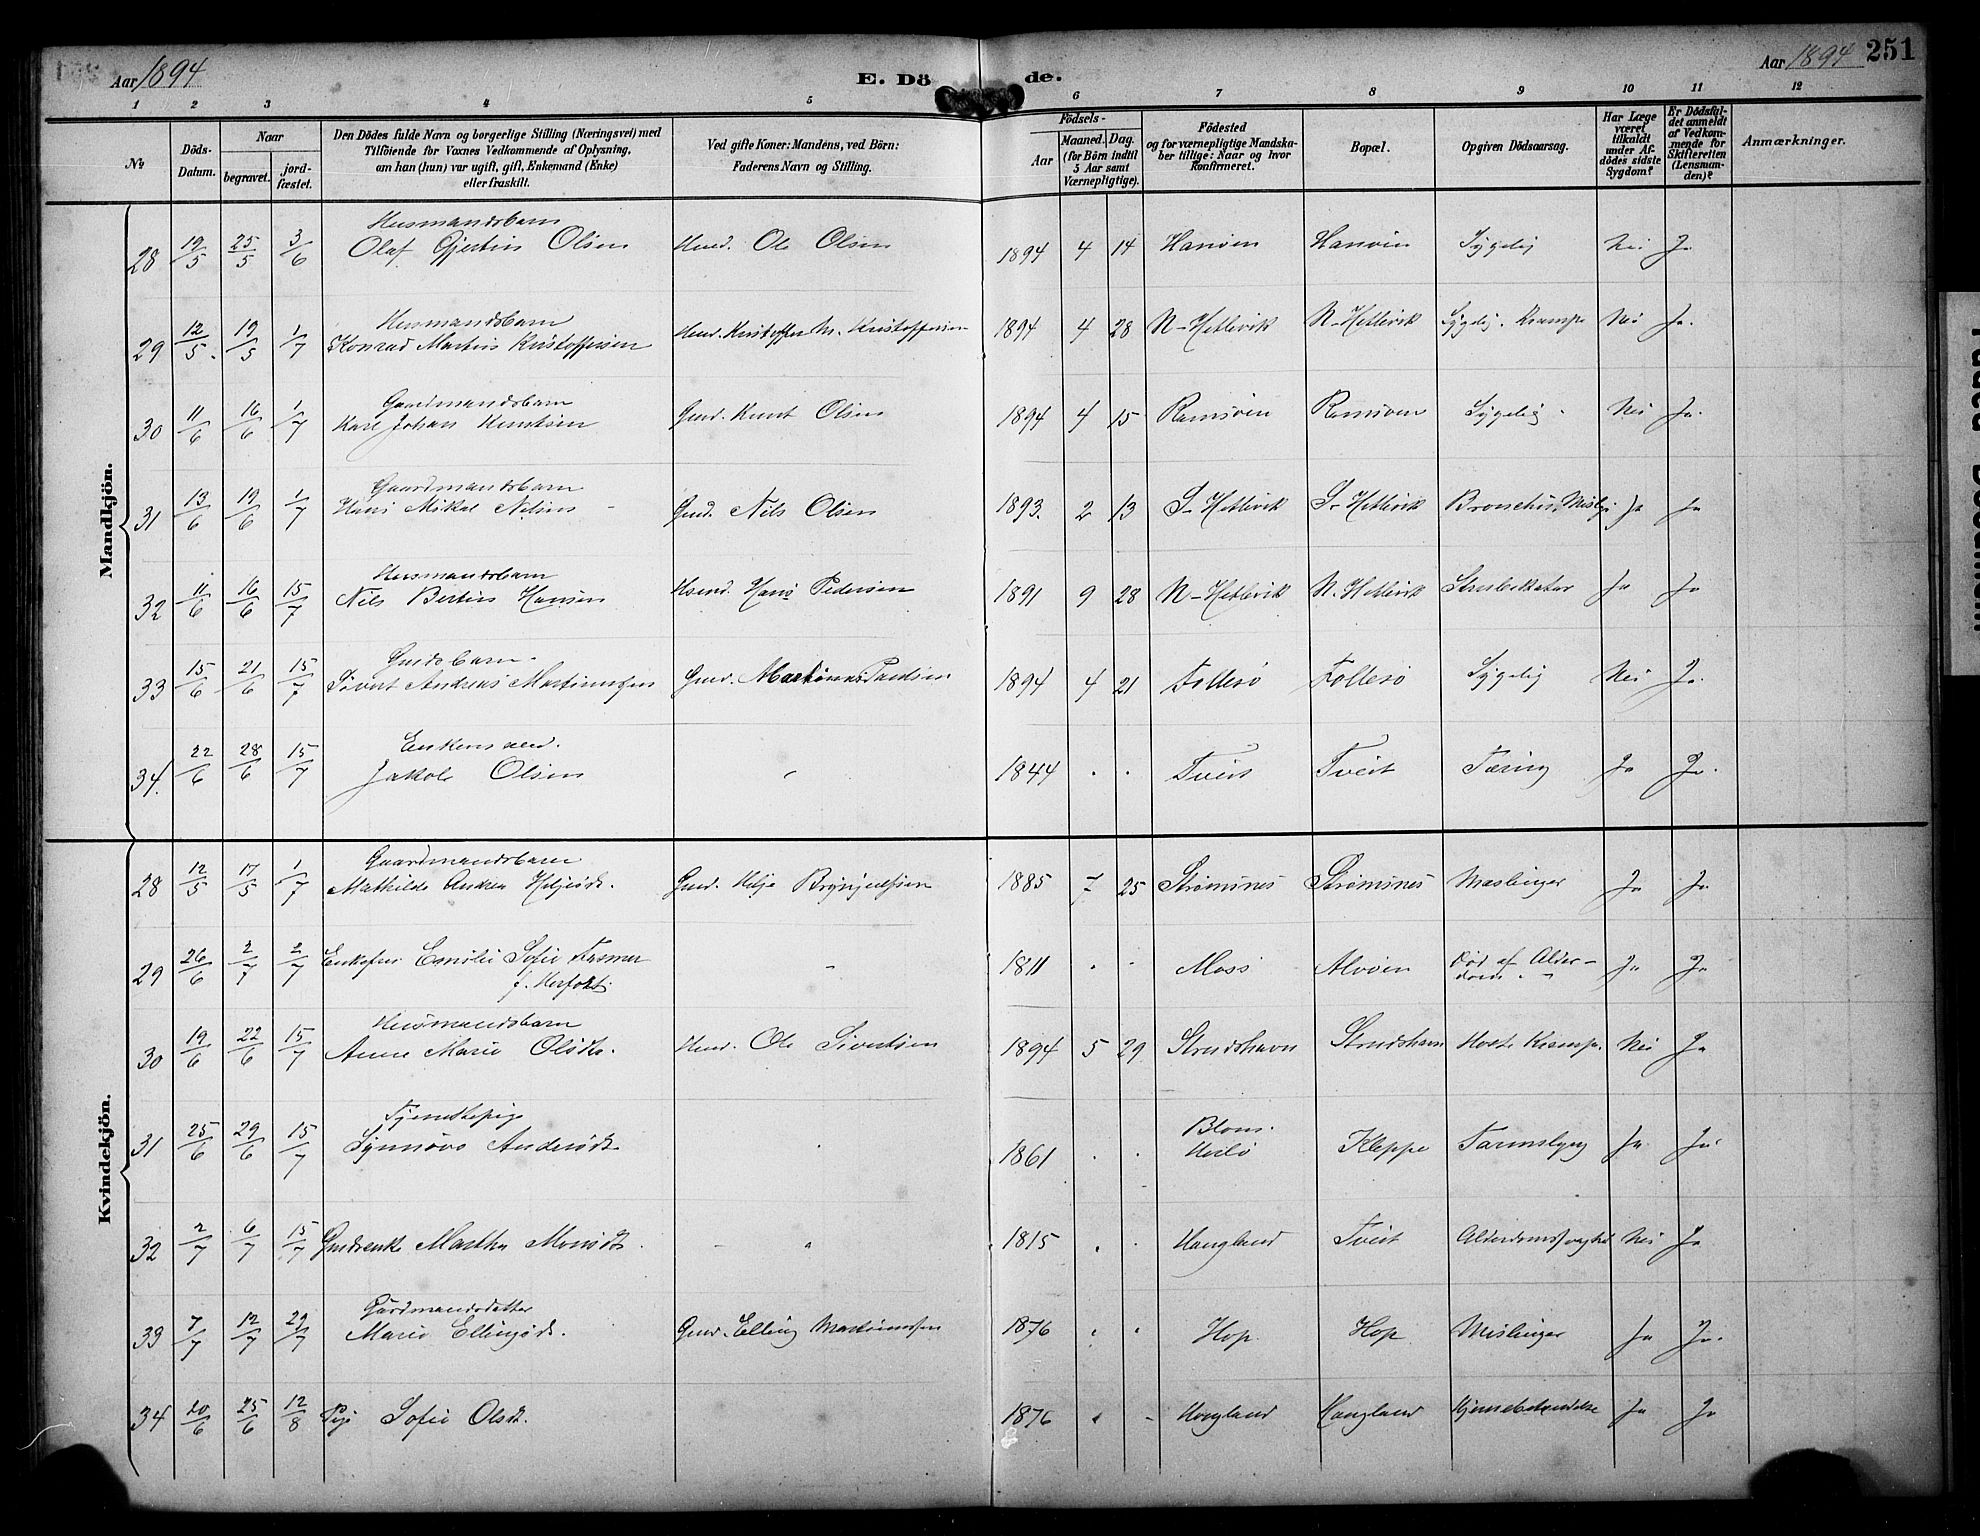 Aar 1894
E. Dö
de.
Aar 1894 251
1 2 3 4 5 6 7 8 9 10 11 12
No
Döds-
Datum.
Naar
begravet.
jord-
fæstet.
Den Dödes fulde Navn og borgerlige Stilling (Næringsvei) med
Tilföiende for Voxnes Vedkommende af Oplysning,
om han (hun) var ugift, gift, Enkemand (Enke)
eller fraskilt.
Ved gifte Koner: Mandens, ved Börn:
Faderens Navn og Stilling.
Födsels-
Aar
Maaned. Dag.
(for Börn indtil
5 Aar samt
Værnepligtige).
Födested
og for værnepligtige Mandska-
ber tillige: Naar og hvor
konfirmeret.
Bopæl.
Opgiven Dödsaarsag.
Har Læge
været
tilkaldt
under Af-
dödes sidste
Sygdom?
Er Dödsfal-
det anmeldt
af Vedkom-
mende for
Skifteretten
(Lensman-
den)?
Anmærkninger.
Mandkjön.
Husmandsbarn
28 19/5 25/5 3/6 Olaf Gjertin Olsen Hmd. Ole Olsen 1894 4 14 Hanöen Hanöen Sygelig Nei Ja
Husmandsbarn
29 12/5. 19/5 1/7 Konrad Martin Kristoffersen Hmd. Kristoffer M. Kristoffersen 1894 4 28 N-Hetlevik N-Hetlevik Sygelig. Krampe Nei Ja.
Gaardmandsbarn
30 11/6 16/6 1/7 Karl Johan Knutsen Gmd. Knut Olsen 1894 4 15 Ramsöen Ramsöen Sygelig. Nei Ja.
Gaardmandsbarn
31 13/6 19/6 1/7 Hans Mikal Nilsen Gmd. Nils Olsen 1893. 2 13 S-Hetlevik S-Hetlevik Bronchit, Ja Ja
Husmandsbarn
32 11/6 16/6 15/7 Nils Bertin Hansen Hsmd. Hans Pedersen 1891 9 28 N-Hetlevik N. Hetlevik Ja Ja
Gmdsbarn.
33 15/6 21/6 15/7 Sivert Andreas Martinussen Gmd. Martinus Paulsen 1894 4 21 Follesö Follesö Sygelig Nei Ja.
Enkemand.
34. 22/6 28/6 15/7 Jakob Olsen 1844 Tveit Tveit Tæring Ja Ja.
Kvindekjön.
Gaardmandsbarn
28 12/5 17/5 1/7 Mathilde Andrea Heljesdt. Gmd. Helje Brynjulfsen 1885 7 25 Strömsnes Strömsnes Meslinger Ja Ja
29 26/6 2/7 2/7 Enkefru Emilie Sofie Fasmer 1811 Moss Alvöen Död af Alder-
f. Herfort dom. Ja Ja
Husmandsbarn
30 19/6 22/6 15/7 Anne Marie Olsdt. Hmd. Ole Sivertsen 1894 5 29 Strudshavn Strudshavn Hoste Krampe. Nei Ja
Tjenestepige
31 25/6 29/6 15/7 Synnöve Andersdt. 1861 Blom.
Herlö Kleppe Tarmslyng Ja Ja
32 2/7 6/7 15/7 Gmdsenke Martha Monsdt. 1815 Haugland Tveit Alderdomssvaghed Nei Ja
Gårdmandsdatter
33 7/7 12/7 29/7 Marie Ellingsdt. Gmd. Elling Martinussen 1876 Hop. Hop Meslinger Ja Ja.
34 20/6 25/6 12/8 Pige Sofie Olsdt. 1876 Haugland Haugland Hjernebetændelse Ja Ja